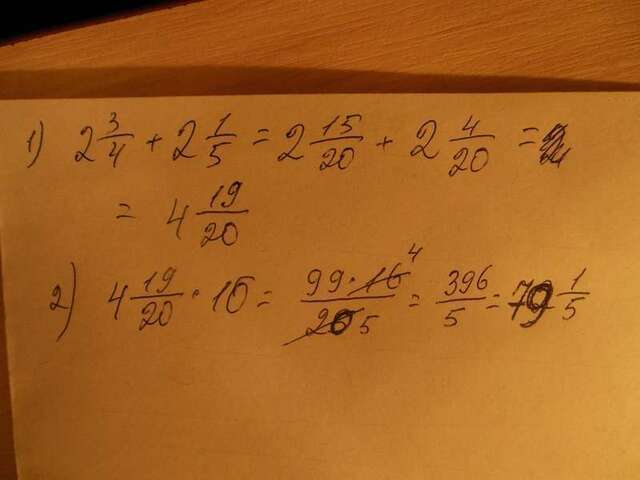 1) 2 3/4 + 2 1/5 = 2 15/20 + 2 4/20 =
= 4 19/20
2) 4 19/20 · 16 = 99·16 4/20 5 = 396/5 = 79 1/5